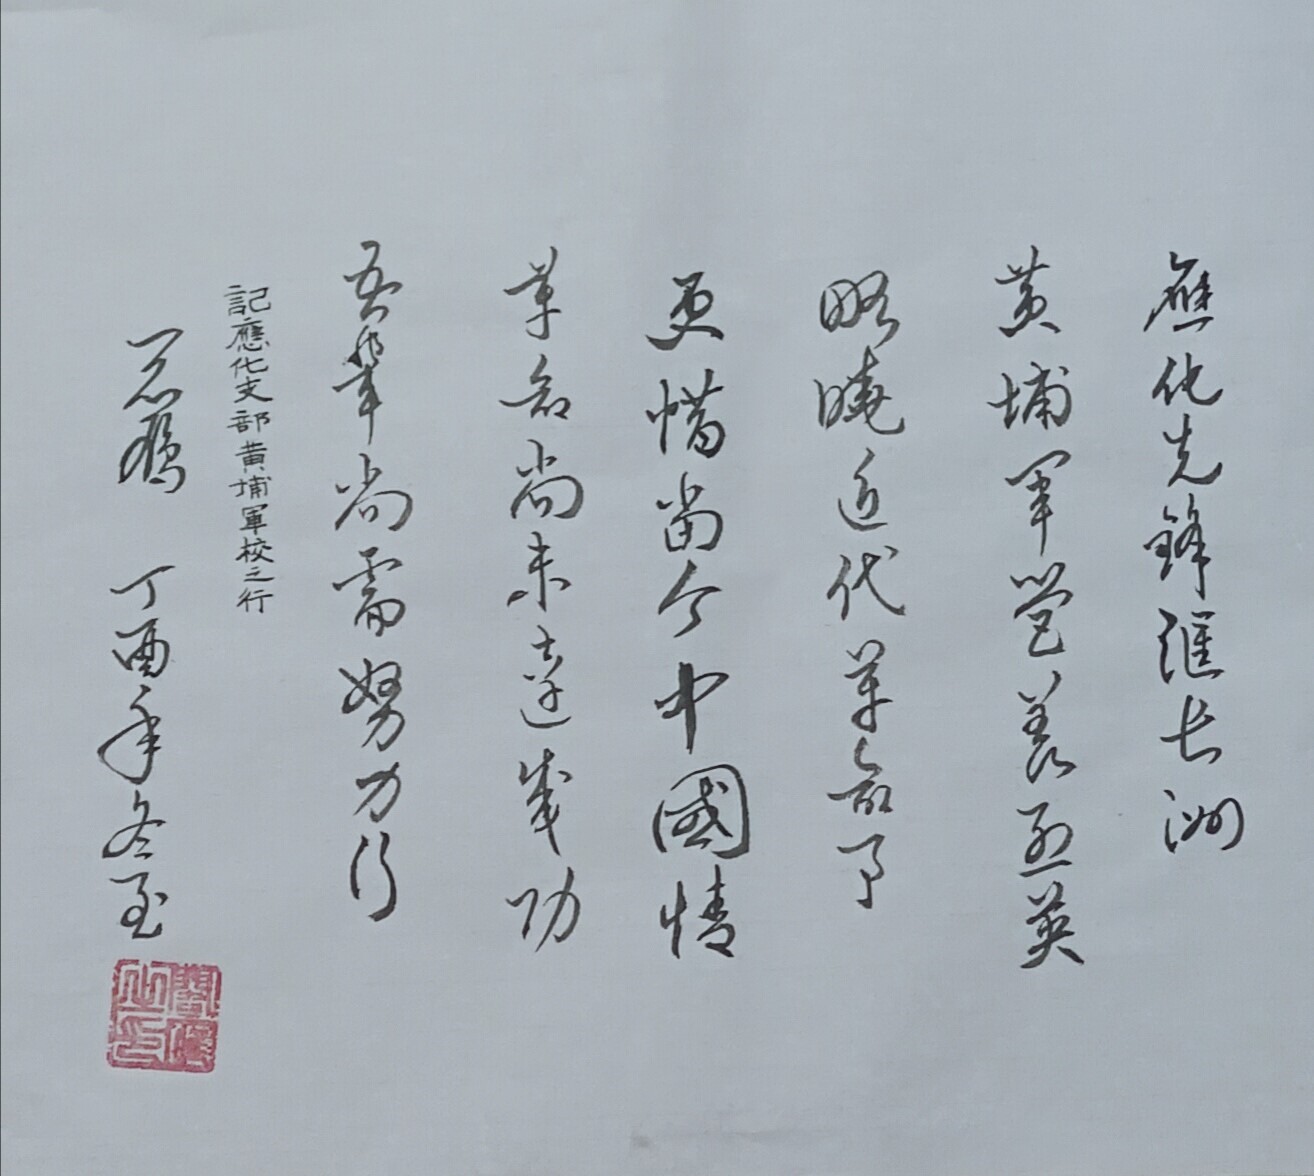 應化先鋒匯长洲
黄埔軍營羨烈英
略曉近代革命事
更惜當今中國情
革命尚未達成功
吾輩尚需努力行
記應化支部黄埔軍校之行
丁酉年冬至